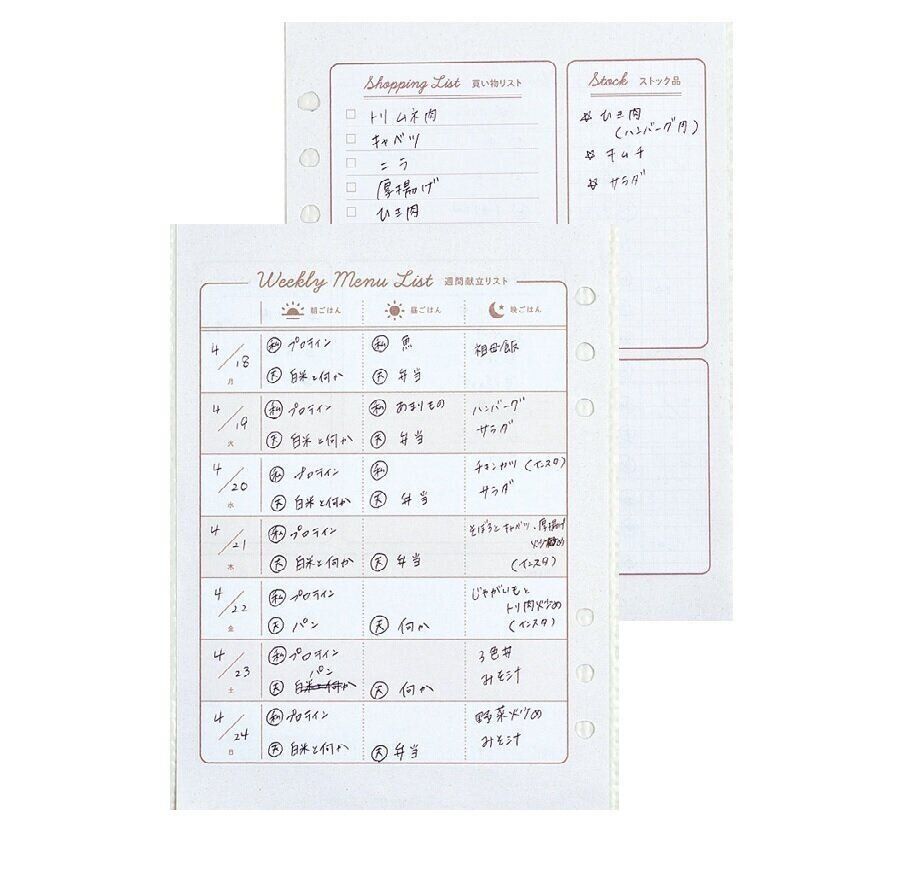 Shopping List 買い物リスト
トリムネ肉
キャベツ
ニラ
厚揚げ
ひき肉
Stock ストック品
☆ ひき肉
(ハンバーグ用)
☆ キムチ
☆ サラダ
Weekly Menu List 週間献立リスト
朝ごはん 昼ごはん 晩ごはん
4/18 月
私 プロテイン
天 白米と何か
私 魚
天 弁当
祖母飯
4/19 火
私 プロテイン
天 白米と何か
私 あまりもの
天 弁当
ハンバーグ
サラダ
4/20 水
私 プロテイン
天 白米と何か
私
天 弁当
チキンカツ (インスタ)
サラダ
4/21 木
私 プロテイン
天 白米と何か
天 弁当
そぼろとキャベツ、厚揚げ
炒め
(インスタ)
4/22 金
私 プロテイン
天 パン
天 何か
じゃがいもと
トリ肉炒め
(インスタ)
4/23 土
私 プロテイン
パン
天 白米と何か
天 何か
3色丼
みそ汁
4/24 日
私 プロテイン
天 白米と何か
天 弁当
野菜炒め
みそ汁